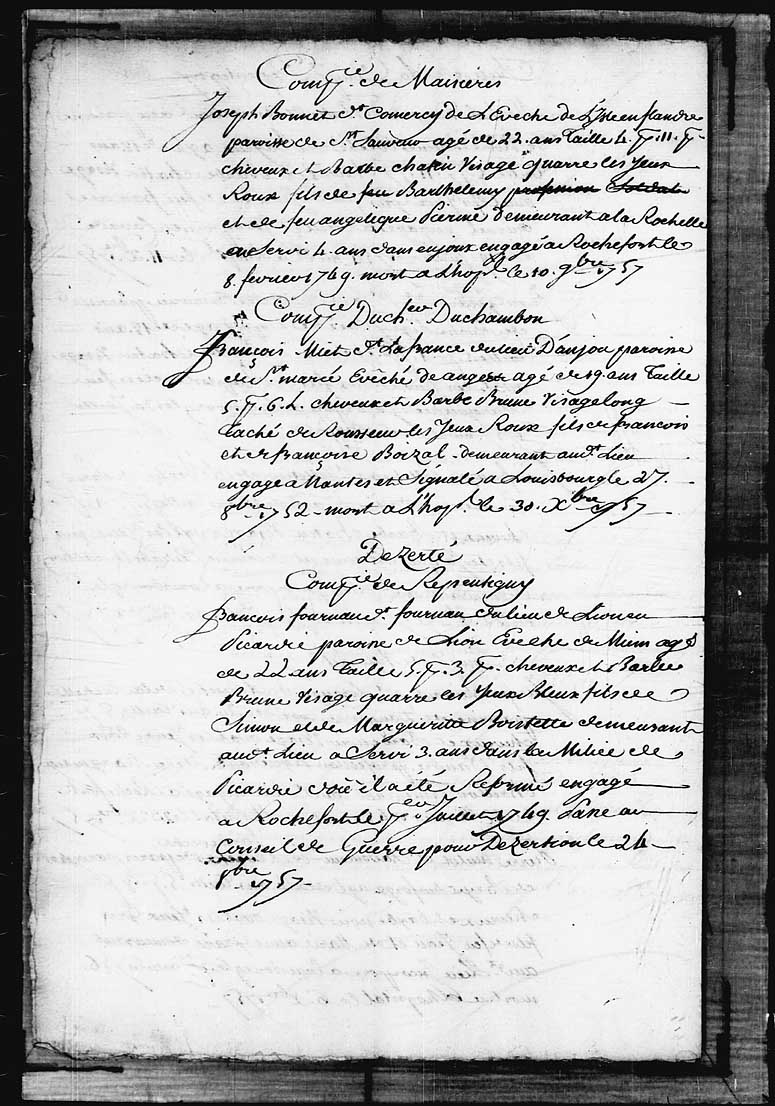 Comp.ie de Maisieres
Joseph Bonnet d.t Comercy de L'Eveché de Lisle en flandre
paroisse de S.t Sauveur agé de 22. ans Taille 4. p. 11. p.
cheveux et Barbe chatin Visage quarre les yeux
Roux fils de feu Barthelemy
et de feu angelique demeurant a la Rochelle
a Servi 4. ans dans engagé a Rochefort le
8. fevrier 1749. mort a L'hop.l le 10. 9bre 1757
Comp.ie Duch.er Duchambon
françois Miet d.t Lafrance du lieu D'anjou paroisse
de S.te marie Evêché de angers agé de 19. ans Taille
5. p. 6. L. cheveux et Barbe Brune Visage long
taché de Rousseur les yeux Roux fils de françois
et de françoise Boizal demeurant aud.t Lieu
engagé à Nantes et Signalé a Louisbourg le 27.
8bre 1752 - mort a L'hop.l le 30. Xbre 1757
Dezerté
Comp.ie de Repentigny
françois fournau d.t fournau du lieu de Lion en
Picardie paroisse de Lion Eveche de agé
de 22 ans Taille 5. p. 3. p. cheveux et Barbe
Brune Visage quarre les yeux Bleux fils de
Simon et de Marguerite Boistelle demeurant
aud.t Lieu a Servi 3. ans dans la Milice de
Picardie d'où il a eté Reformé engagé
a Rochefort le p.er Juillet 1749 Passé au
Conseil de Guerre pour Dezertion le 24
bre 1757